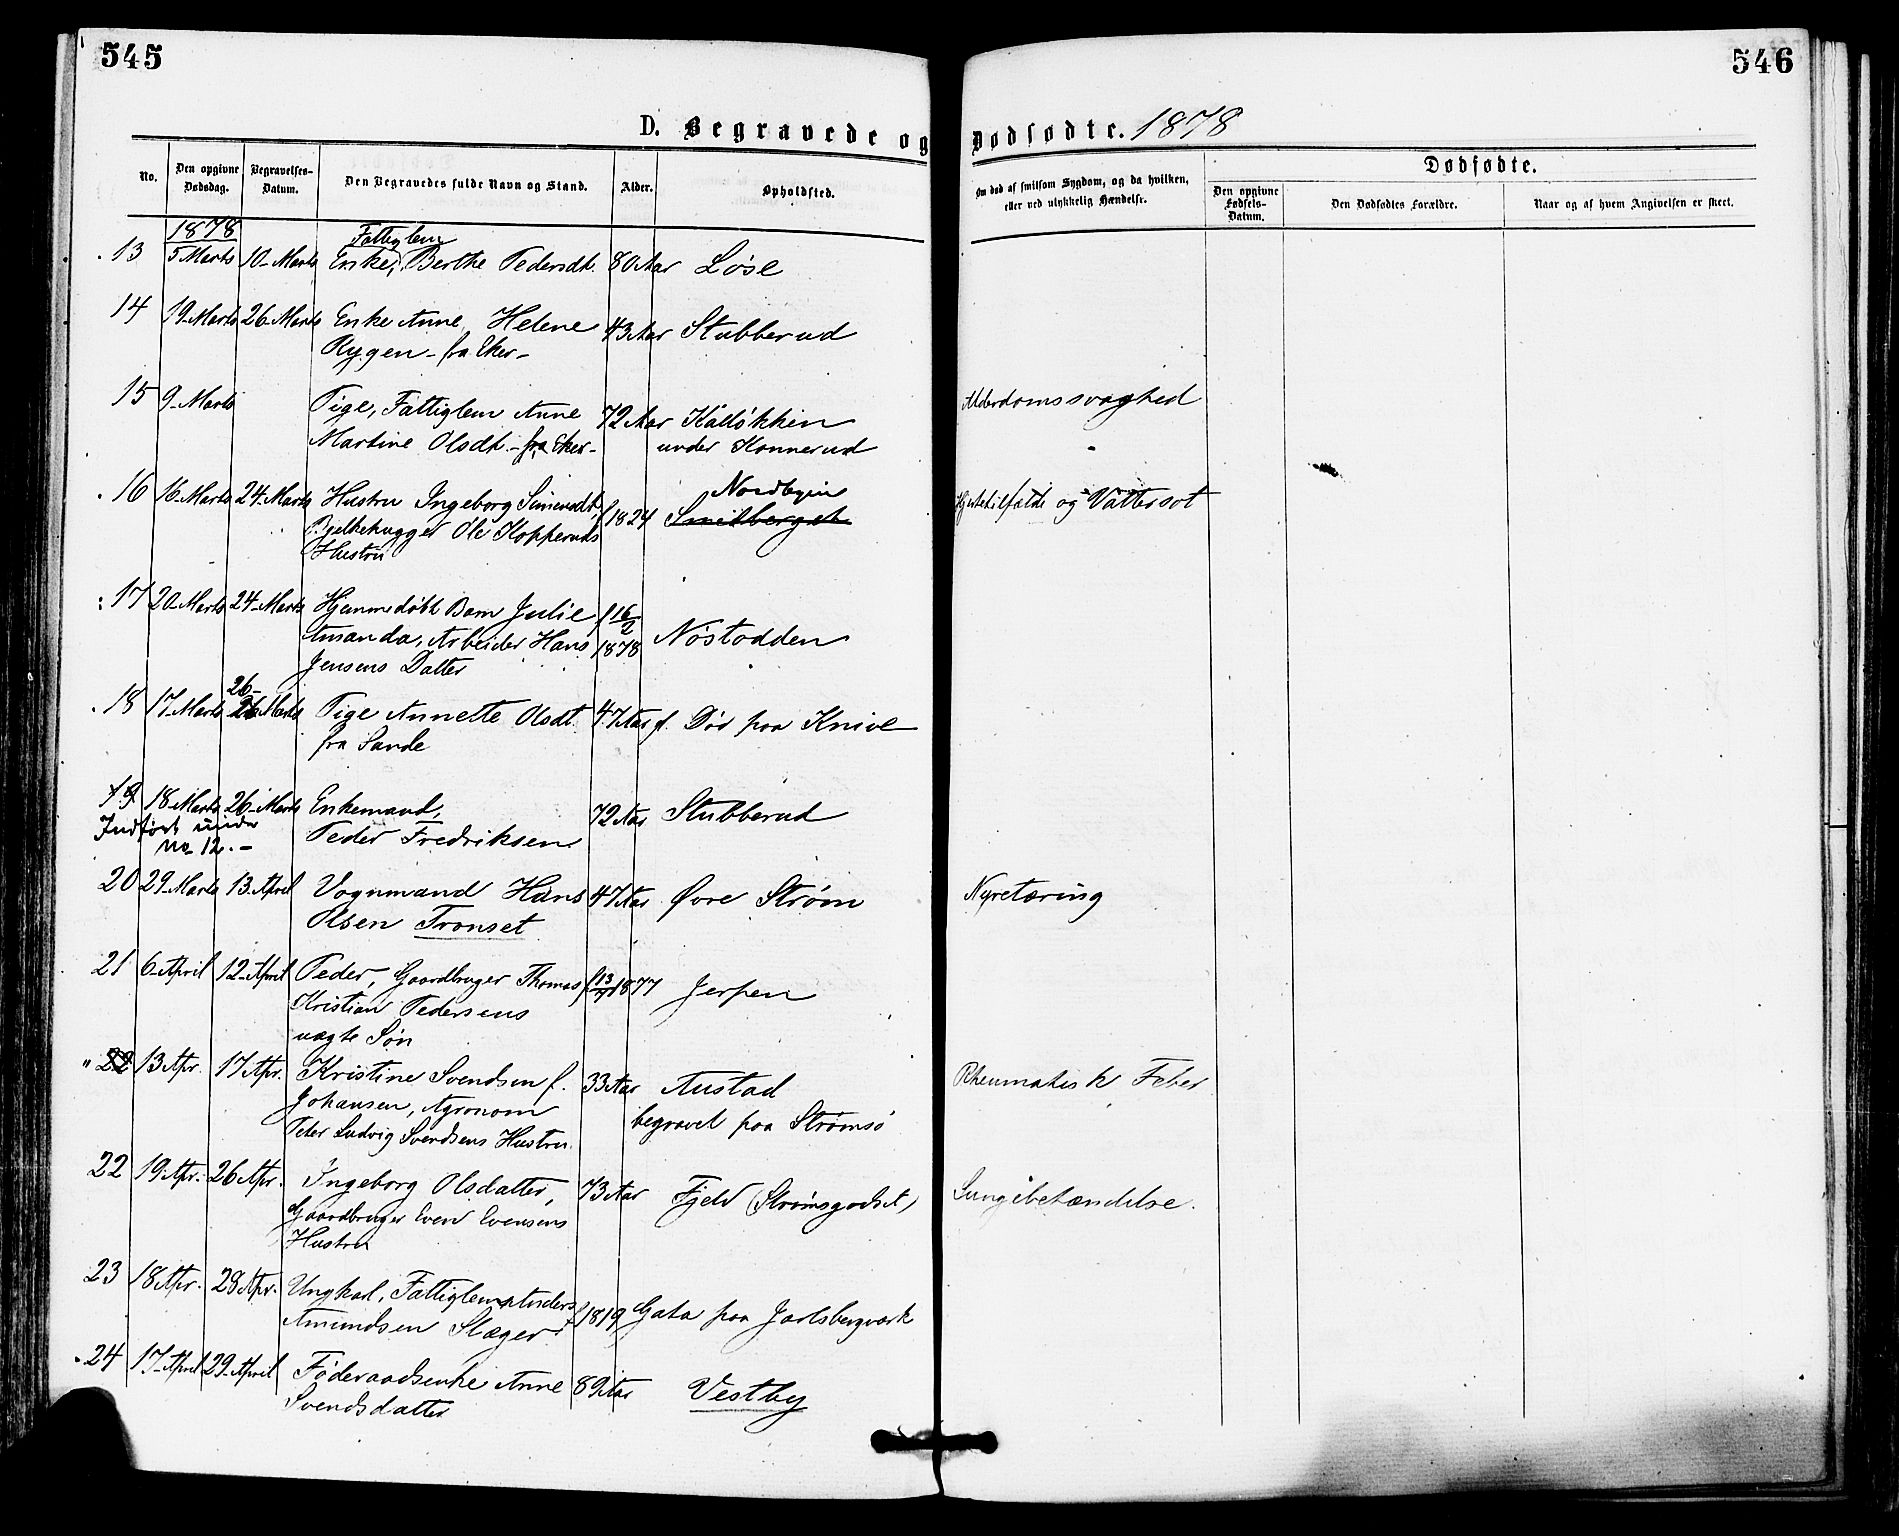 545
546
D. Begravede og Dødfødte. 1878
No.
Den opgivne Dødsdag.
Begravelses-Datum.
Den Begravedes fulde Navn og Stand.
Alder.
Opholdsted.
Om død af smitsom Sygdom, og da hvilken, eller ved ulykkelig Hændelse.
Dødfødte.
Den opgivne Fødsels-Datum.
Den Dødfødtes Forældre.
Naar og af hvem Angivelsen er skeet.
1878
Fattiglem
13 5 Marts 10 Marts Enke, Berthe Pedersdt. 80 Aar Løse
14 19 Marts 26 Marts Enke Anne Helene 43 Aar Stubberud
Rygen - fra Eker -
15 9 Marts Pige, Fattiglem Anne 72 Aar Kålløkken Alderdomssvaghed
Martine Olsdt. - fra Eker - under Konnerud
Nordbyen
16 16 Marts 24 Marts Hustru Ingeborg Simensdt. f 1824 Smedberget Hjertetilfælde og Vattersot
Bjelkehugger Ole Kopperuds
Hustru
17 20 Marts 24 Marts Hjemmedøbt Barn Julie f 16/2 1878 Nøstodden
Amanda, Arbeider Hans
Jensens Datter
26-
18 17 Marts 26 Marts Pige Annette Olsdt. 47 Aar f. Død paa Knive
fra Sande
19 18 Marts 26 Marts Enkemand, 72 Aar Stubberud
Indført under Peder Fredriksen
no 12. -
20 29 Marts 13 April Vognmand Hans 47 Aar Øvre Strøm Nyretæring
Olsen Tronset
21 6 April 12 April Peder, Gaardbruger Thomas f 13/7 1877 Jerpen
Kristian Pedersens
uægte Søn
" 22 13 Apr. 17 Apr. Kristine Svendsen f. 33 Aar Austad Rheumatisk Feber
Johansen, Agronom begravet paa Strømsø
Peter Ludvig Svendsens Hustru.
22 19 Apr. 26 Apr. Ingeborg Olsdatter, 73 Aar Fjeld (Strømsgodset) Lungebetændelse.
Gaardbruger Even Evensens
Hustru
23 18 Apr. 28 Apr. Ungkarl, Fattiglem Anders f 1819 Gata paa Jarlsbergværk
Amundsen Slæger
24 17 April 29 April Føderaadsenke Anne 89 Aar Vestby
Svendsdatter